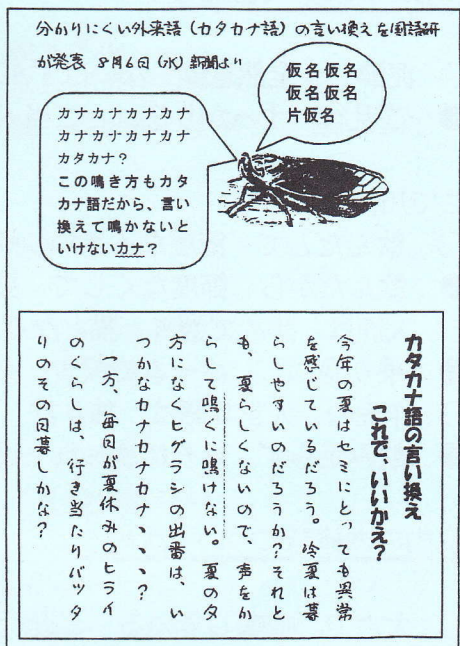 分かりにくい外来語(カタカナ語)の言い換えを国語研
が発表 8月6日(水)新聞より
仮名仮名
仮名仮名
片仮名
カナカナカナカナ
カナカナカナカナ
カタカナ?
この鳴き方もカタ
カナ語だから、言い
換えて鳴かないと
いけないカナ?
カタカナ語の言い換え
これで、いいかえ?
今年の夏はセミにとっても異常
を感じているだろう。冷夏は暮
らしやすいのだろうか?それと
も、夏らしくないので、声をか
らして鳴くに鳴けない。夏の夕
方になくヒグラシの出番は、い
つかなカナカナカナ、、、?
一方、毎日が夏休みのヒライ
のくらしは、行き当たりバッタ
りのその日暮しかな?